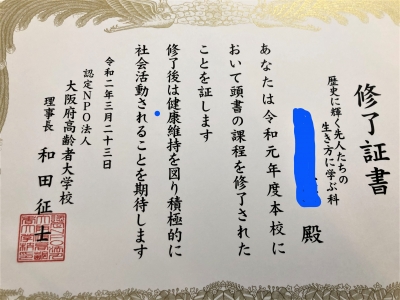 修了証書
歴史に輝く先人たちの
生き方に学ぶ科
殿
あなたは令和元年度本校に
おいて頭書の課程を修了された
ことを証します
修了後は健康維持を図り積極的に
社会活動されることを期待します
令和二年三月二十三日
認定NPO法人
大阪府高齢者大学校
理事長 和田征士